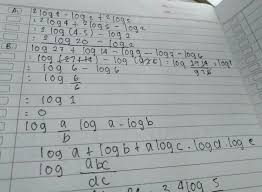 A.) 2 log 4 - log 2 + 2 log 5
: 2 log 4 + 2 log 5 - log 2
: 2 log (4.5) - log 2
: 2 log 20 - log 2
B.) log 27 + log 14 - log 9 - log 7 - log 6
: log - log
: log 6 - log 6
: log 6/6
: log 1
: 0
log a/b log a - log b
log a + log b + a log c - log d . log e
log abc/dc
4 log 5